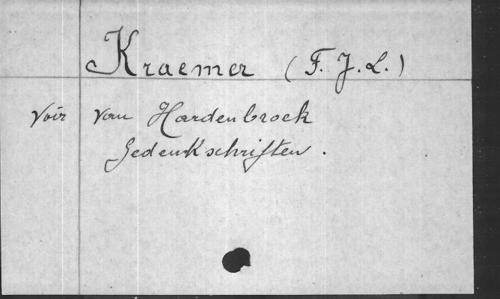 Kraemer (F. J. L.)
Voir van Hardenbroek
Gedenkschriften.